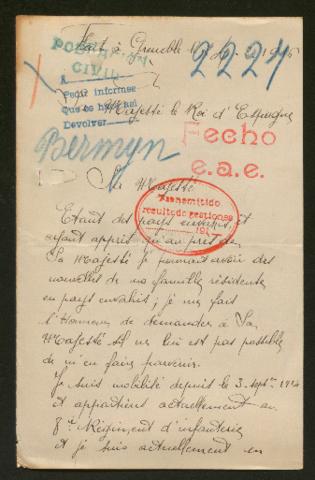 Fait à Grenoble le
2224
POBLACION
CIVIL
A
Pedir informes
Devolver
Majesté le Roi d'Espagne
Fecho
e.a.e.
Bermyn
Sa Majesté
Transmitido
resultado gestiones
191
Etant des pays envahis et
ayant appris qu'auprès de
Sa Majesté je pourrait avoir des
nouvelles de ma famille résidente
en pays envahis; je me fais
l'Honneur de demander à Sa
Majesté si ne lui est pas possible
de m'en faire parvenir.
Je suis mobilisé depuis le 3 Sept 1914
et appartient actuellement au
8e Régiment d'infanterie
et je suis actuellement en